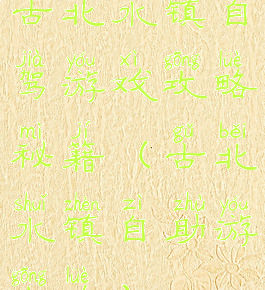 古北水镇自
jià yóu xì gōng lüè
驾游戏攻略
mì jí gǔ běi
秘籍（古北
shuǐ zhèn zì zhù yóu
水镇自助游
gōng lüè